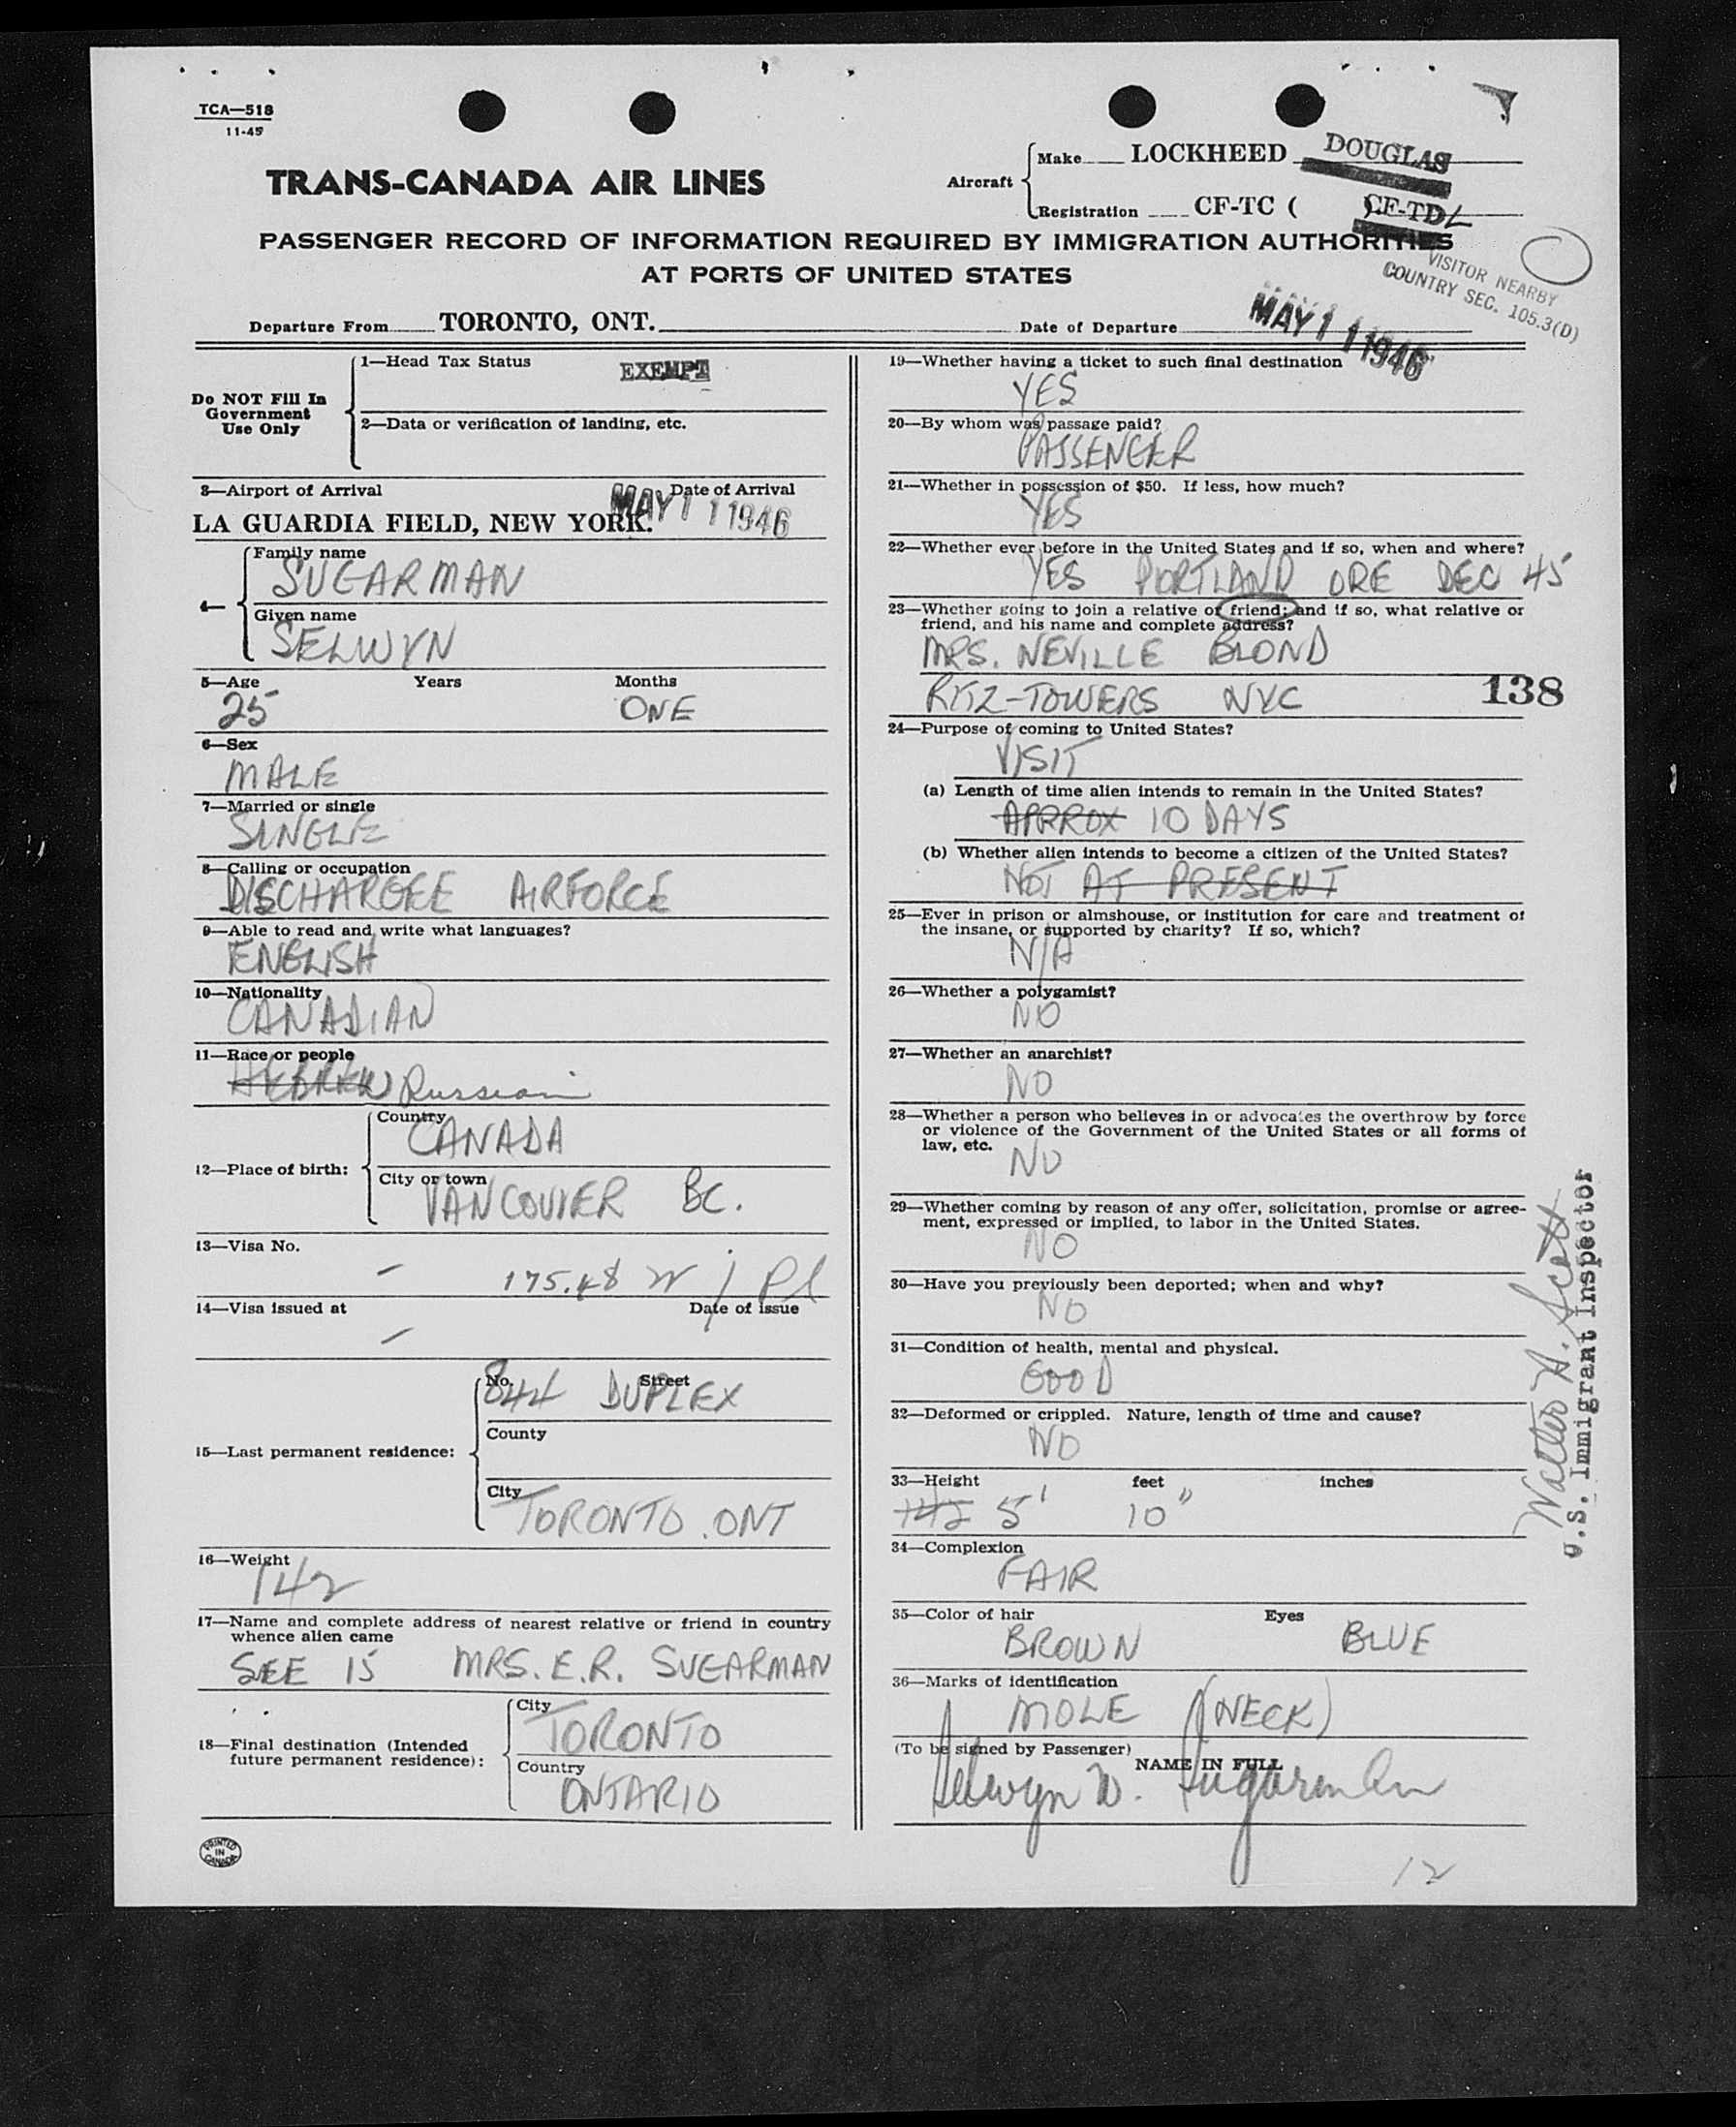 TCA—518
11-45
TRANS-CANADA AIR LINES
Aircraft
Make LOCKHEED DOUGLAS
Registration CF-TC ( ) CF-TDL
PASSENGER RECORD OF INFORMATION REQUIRED BY IMMIGRATION AUTHORITIES
AT PORTS OF UNITED STATES
VISITOR NEARBY
COUNTRY SEC. 105.3(D)
Departure From TORONTO, ONT. Date of Departure MAY 11 1946
Do NOT Fill In
Government
Use Only
1—Head Tax Status EXEMPT
2—Data or verification of landing, etc.
3—Airport of Arrival Date of Arrival
LA GUARDIA FIELD, NEW YORK. MAY 11 1946
4—
Family name
SUGARMAN
Given name
SELWYN
5—Age Years Months
25 ONE
6—Sex
MALE
7—Married or single
SINGLE
8—Calling or occupation
DISCHARGEE AIRFORCE
9—Able to read and write what languages?
ENGLISH
10—Nationality
CANADIAN
11—Race or people
HEBREW Russian
12—Place of birth:
Country
CANADA
City or town
VANCOUVER BC.
13—Visa No.
– 175.48
14—Visa issued at Date of issue
–
15—Last permanent residence:
No. Street
844 DUPLEX
County
City
TORONTO. ONT
16—Weight
142
17—Name and complete address of nearest relative or friend in country
whence alien came
SEE 15 MRS. E.R. SUGARMAN
18—Final destination (Intended
future permanent residence):
City
TORONTO
Country
ONTARIO
PRINTED
IN
CANADA
19—Whether having a ticket to such final destination
YES
20—By whom was passage paid?
PASSENGER
21—Whether in possession of $50. If less, how much?
YES
22—Whether ever before in the United States and if so, when and where?
YES PORTLAND ORE DEC 45
23—Whether going to join a relative or friend; and if so, what relative or
friend, and his name and complete address?
MRS. NEVILLE BLOND
RITZ-TOWERS NYC 138
24—Purpose of coming to United States?
VISIT
(a) Length of time alien intends to remain in the United States?
APRROX 10 DAYS
(b) Whether alien intends to become a citizen of the United States?
NOT AT PRESENT
25—Ever in prison or almshouse, or institution for care and treatment of
the insane, or supported by charity? If so, which?
N/A
26—Whether a polygamist?
NO
27—Whether an anarchist?
NO
28—Whether a person who believes in or advocates the overthrow by force
or violence of the Government of the United States or all forms of
law, etc.
NO
29—Whether coming by reason of any offer, solicitation, promise or agree-
ment, expressed or implied, to labor in the United States.
NO
30—Have you previously been deported; when and why?
NO
31—Condition of health, mental and physical.
GOOD
32—Deformed or crippled. Nature, length of time and cause?
NO
33—Height feet inches
142 5' 10"
34—Complexion
FAIR
35—Color of hair Eyes
BROWN BLUE
36—Marks of identification
MOLE (NECK)
(To be signed by Passenger) NAME IN FULL
Selwyn W. Sugarman
12
Walter H. Scott
U.S. Immigrant Inspector